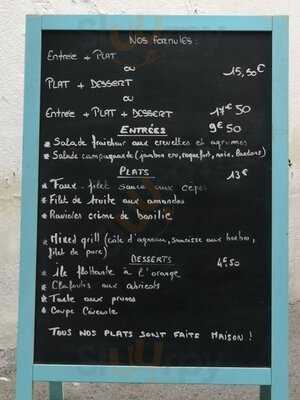 Nos Formules :
Entrée + Plat
ou
15,50€
Plat + Dessert
ou
Entrée + Plat + Dessert 17€50
Entrées 9€50
* Salade fraicheur aux crevettes et agrumes
* Salade campagnarde (jambon cru, roquefort, noix, lardons)
Plats 13€
* Faux-filet sauce aux cepes
* Filet de truite aux amandes
* Ravioles crème de basilic
* Mixed grill (côte d'agneau, saucisse aux herbes,
filet de porc)
Desserts 4€50
* île flottante à l'orange
* Clafoutis aux abricots
* Tarte aux prunes
* Coupe Cévenole
Tous nos plats sont faits maison !